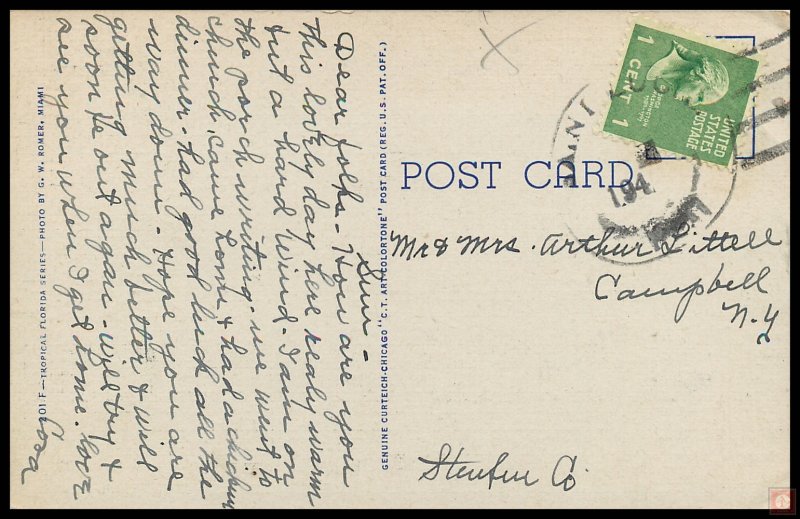 Sun-
Dear folks - How are you
this lovely day here realy warm
but a hard wind. I am on
the porch writing. we went to
church, came home & had a chicken
dinner. had good luck all the
way down - Hope you are
getting much better & will
soon be out again - will try &
see you when I get home. love
Cora
201 F—TROPICAL FLORIDA SERIES—PHOTO BY G. W. ROMER, MIAMI
GENUINE CURTEICH-CHICAGO "C.T. ART-COLORTONE" POST CARD (REG. U. S. PAT. OFF.)
POST CARD
1 CENT 1
UNITED
STATES
POSTAGE
194
Mr & Mrs. Arthur Littell
Campbell
N.Y
Steuben Co